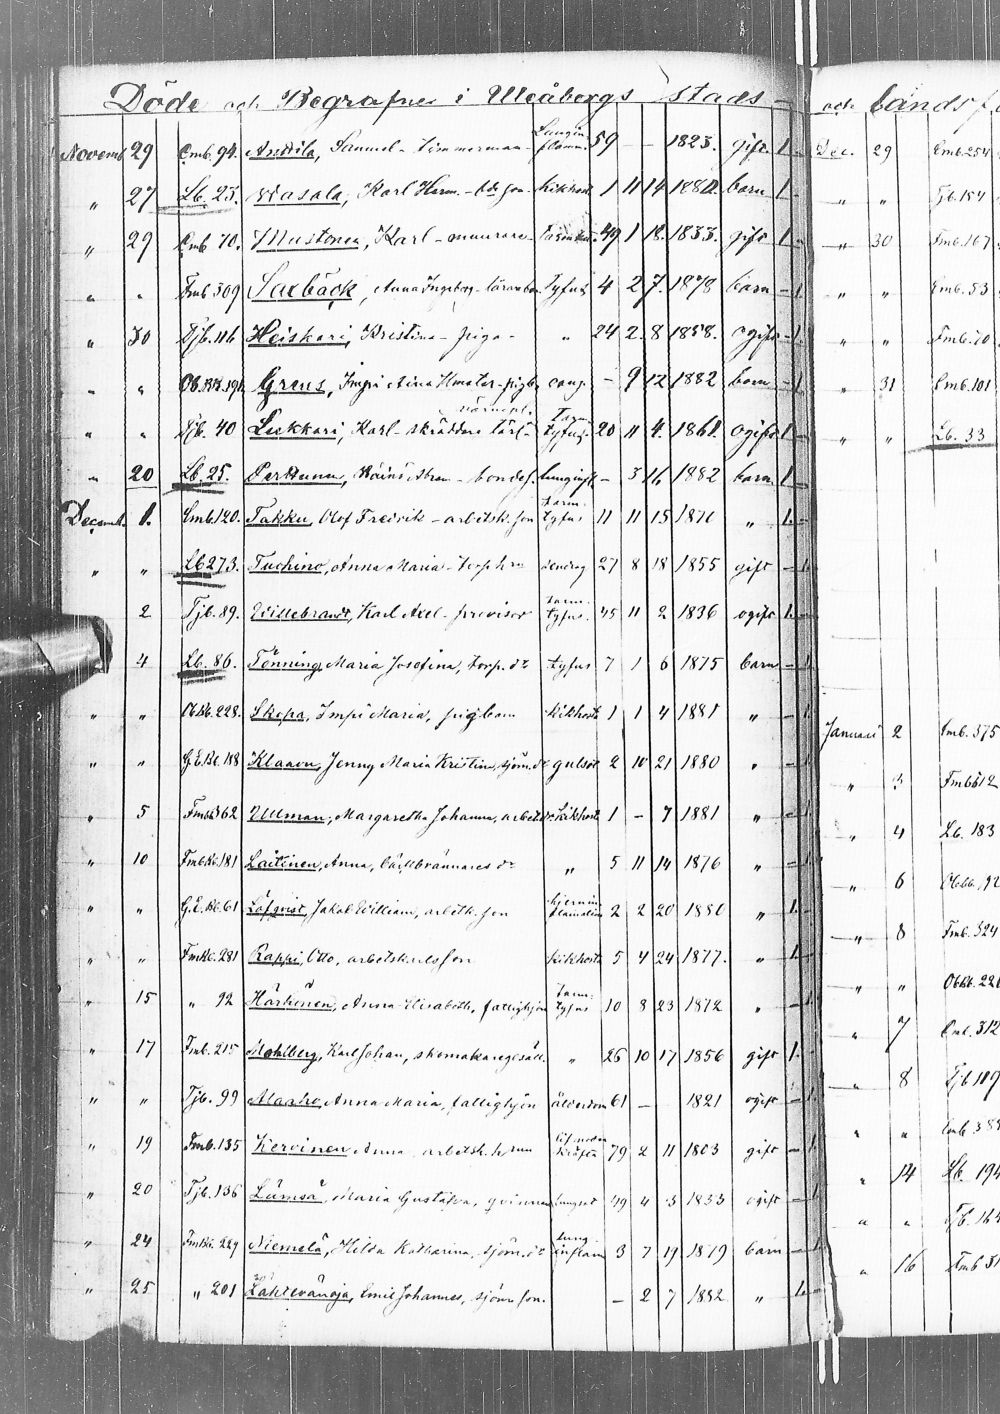 Döde och Begrafne i Uleåborgs stads - och Lands f
Novemb 29 Emb. 94. Anttila, Samuel - timmerman - Lungin flamm. 59 - - 1823. gift. 1.
" 27 Lb. 23. Wasala, Karl Herm. - bde son - kikhost 1 11 14 barn 1.
" 29 Emb 70. Mustonen, Karl - murare - 49 1 18. 1833. gift 1.
" " Fmb 309 Saxbäck, Anna Ingeborg - Tyfus 4 2 7. 1878 barn - 1.
" 30 Tjb. 116 Heiskari, Kristina - piga - " 24 2. 8 1858. ogift - 1.
" " Grens, Impi Aina - pigb. - 9 12 1882 barn - 1
" " Tjb. 40 Lukkari, Karl - skräddare Tarm tyfus 20 11 4. 1861. ogift 1
" 20 Lb. 25. Perttunen, - bondes. lunginfl - 3 16 1882 barn 1
Decemb. 1. Emb. 120. Takku, Olof Fredrik - arbetsk. son tarm. tyfus 11 11 15 1870 " 1.
" " Lb 273. Tuohino, Anna Maria - torp. hru 27 8 18 1855 gift - 1.
2 Tjb. 89. Willebrandt, Karl Axel - provisor tarm. tyfus. 45 11 2 1836 ogift 1.
4 Lb. 86. Tönning, Maria Josefina, torp. dr tyfus 7 1 6 1875 barn - 1.
" " ObKb. 228. Skopa, Impi Maria, pigbarn kikhosta 1 1 4 1881 " - 1.
" " G.E.Kb. 188 Klaavu, Jenny Maria Kristina, sjöm. dr gulsot 2 10 21 1880 " - 1.
" 5 Ullman, Margaretha Johanna, arbet dr kikhosta 1 - 7 1881 " - 1.
" 10 FmbKb. 181 Laitinen, Anna, dr " 5 11 14 1876 " - 1.
" " G.E.Kb. 61 Löfqvist, Jakob William, arbetk. son hjernin flamation 2 2 20 1880 " 1.
" " FmKb. 281 Rappi, Otto, arbetskarlsson kikhosta 5 4 24 1877. " 1.
" 15 " 92 Härkönen, Anna Elisabeth, fattighjon tarm. tyfus 10 8 23 1872 " - 1.
" 17 Fmb. 215 Mohlberg, Karl Johan, skomakaregesäll " 26 10 17 1856 gift 1.
" " Tjb. 99 Anna Maria, fattighjon ålderdom 61 - 1821 ogift - 1.
" 19 Fmb. 135 Kervinen Anna arbetsk. hru lifmoder kräfta 79 2 11 1803 gift - 1.
" 20 Tjb. 136 Lämsä, Maria Gustafva, qvinna lungsot 49 4 3 1833 ogift - 1.
" 24 FmKb. 229 Niemelä, Hilda Katharina, sjöm. dr Lung inflam 3 7 19 1879 barn - 1.
" 25 " 201 Lähtevänoja, Emil Johannes, sjöm son. - 2 7 1882 " 1.
Dec. 29 Emb. 254
" " Tjb. 184
" 30 Fmb. 167
" " Emb. 53
" " Fmb. 70
" 31 Emb. 101
" " Lb. 33
Januari 2 Emb. 375
" 3 Fmb 612
" 4 Lb. 183
" 6 ObKb. 92
" 8 Fmb. 324
" " ObKb. 226
" 7 Emb. 312
" 8 Tjb 119
" " Emb 385
" 14 Lb. 194
" " Tjb. 165
" 16 Fmb 31